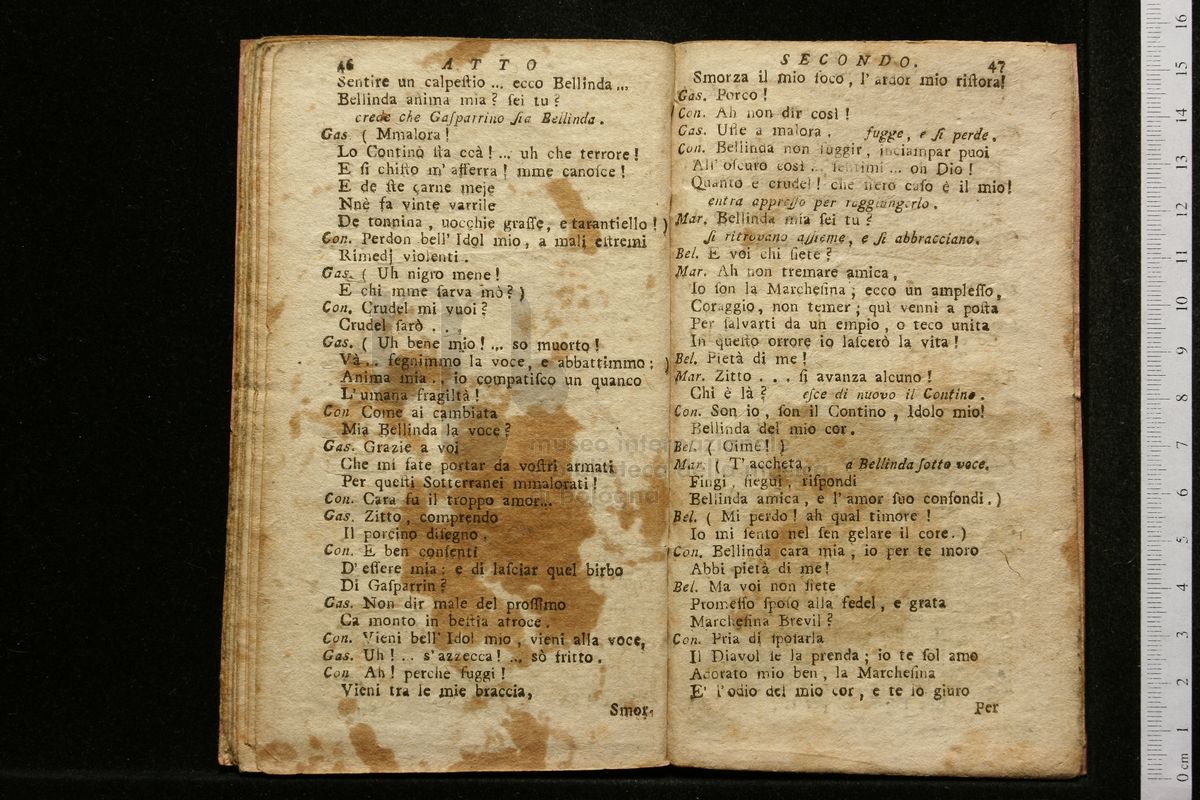 46 ATTO
Sentire un calpeſtio ... ecco Bellinda ...
Bellinda anima mia? ſei tu?
crede che Gaſparrino ſia Bellinda.
Gas. ( Mmalora!
Lo Contino ſta ccà! ... uh che terrore!
E ſi chiſto m' afferra! mme canoſce!
E de ſte carne meje
Nnè fa vinte varrile
De tonnina, uocchie graſſe, e tarantiello!)
Con. Perdon bell' Idol mio, a mali eſtremi
Rimedj violenti.
Gas. ( Uh nigro mene!
E chi mme ſarva mò?)
Con. Crudel mi vuoi?
Crudel ſarò . . .
Gas. ( Uh bene mio! ... so muorto!
Và .. ſegnimmo la voce, e abbattimmo: )
Anima mia .. io compatiſco un quanco
L' umana fragiltà!
Con Come ai cambiata
Mia Bellinda la voce?
Gas. Grazie a voi
Che mi fate portar da voſtri armati
Per queſti Sotterranei mmalorati!
Con. Cara fu il troppo amor...
Gas. Zitto, comprendo
Il porcino diſegno.
Con. E ben conſenti
D' eſſere mia: e di laſciar quel birbo
Di Gaſparrin?
Gas. Non dir male del proſſimo
Ca monto in beſtia atroce.
Con. Vieni bell' Idol mio, vieni alla voce,
Gas. Uh! .. s' azzecca! ... sò fritto.
Con Ah! perche fuggi!
Vieni tra le mie braccia,
Smor-
SECONDO. 47
Smorza il mio foco, l' ardor mio riſtora!
Gas. Porco!
Con. Ah non dir così!
Gas. Uſie a malora. fugge, e ſi perde.
Con. Bellinda non fuggir, inciampar puoi
All' oſcuro così ... ſentimi ... oh Dio!
Quanto è crudel! che fiero caſo è il mio!
entra appreſſo per raggiungerlo.
Mar. Bellinda mia ſei tu?
ſi ritrovano aſſieme, e ſi abbracciano.
Bel. E voi chi ſiete?
Mar. Ah non tremare amica,
Io ſon la Marcheſina; ecco un ampleſſo,
Coraggio, non temer; quì venni a poſta
Per ſalvarti da un empio, o teco unita
In queſto orrore io laſcerò la vita!
Bel. Pietà di me!
Mar. Zitto . . . ſi avanza alcuno!
Chi è là? eſce di nuovo il Contino.
Con. Son io, ſon il Contino, Idolo mio!
Bellinda del mio cor.
Bel. ( Oimè! )
Mar. ( T' accheta, a Bellinda ſotto voce.
Fingi, ſiegui, riſpondi
Bellinda amica, e l' amor ſuo confondi.)
Bel. ( Mi perdo! ah qual timore!
Io mi ſento nel ſen gelare il core.)
Con. Bellinda cara mia, io per te moro
Abbi pietà di me!
Bel. Ma voi non ſiete
Promeſſo ſpoſo alla fedel, e grata
Marcheſina Brevil?
Con. Pria di ſpoſarla
Il Diavol ſe la prenda; io te ſol amo
Adorato mio ben, la Marcheſina
E' l' odio del mio cor, e te lo giuro
Per
museo internazionale
biblioteca della musica
bologna
0 cm 1 2 3 4 5 6 7 8 9 10 11 12 13 14 15 16